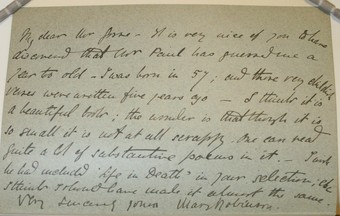 My dear Mr Gosse – It is very nice of you to have
discovered that Mr Paul has guessed me a
year too old – I was born in 57; and those very childish
verses were written five years ago – I think it is
a beautiful book; the wonder is that though it is
so small it is not at all scrappy. One can read
quite a lot of substantive poems in it. – I wish
he had included 'Life in Death' in your selection,
I think I should have made it almost the same.
Very sincerely yours Mary Robinson.